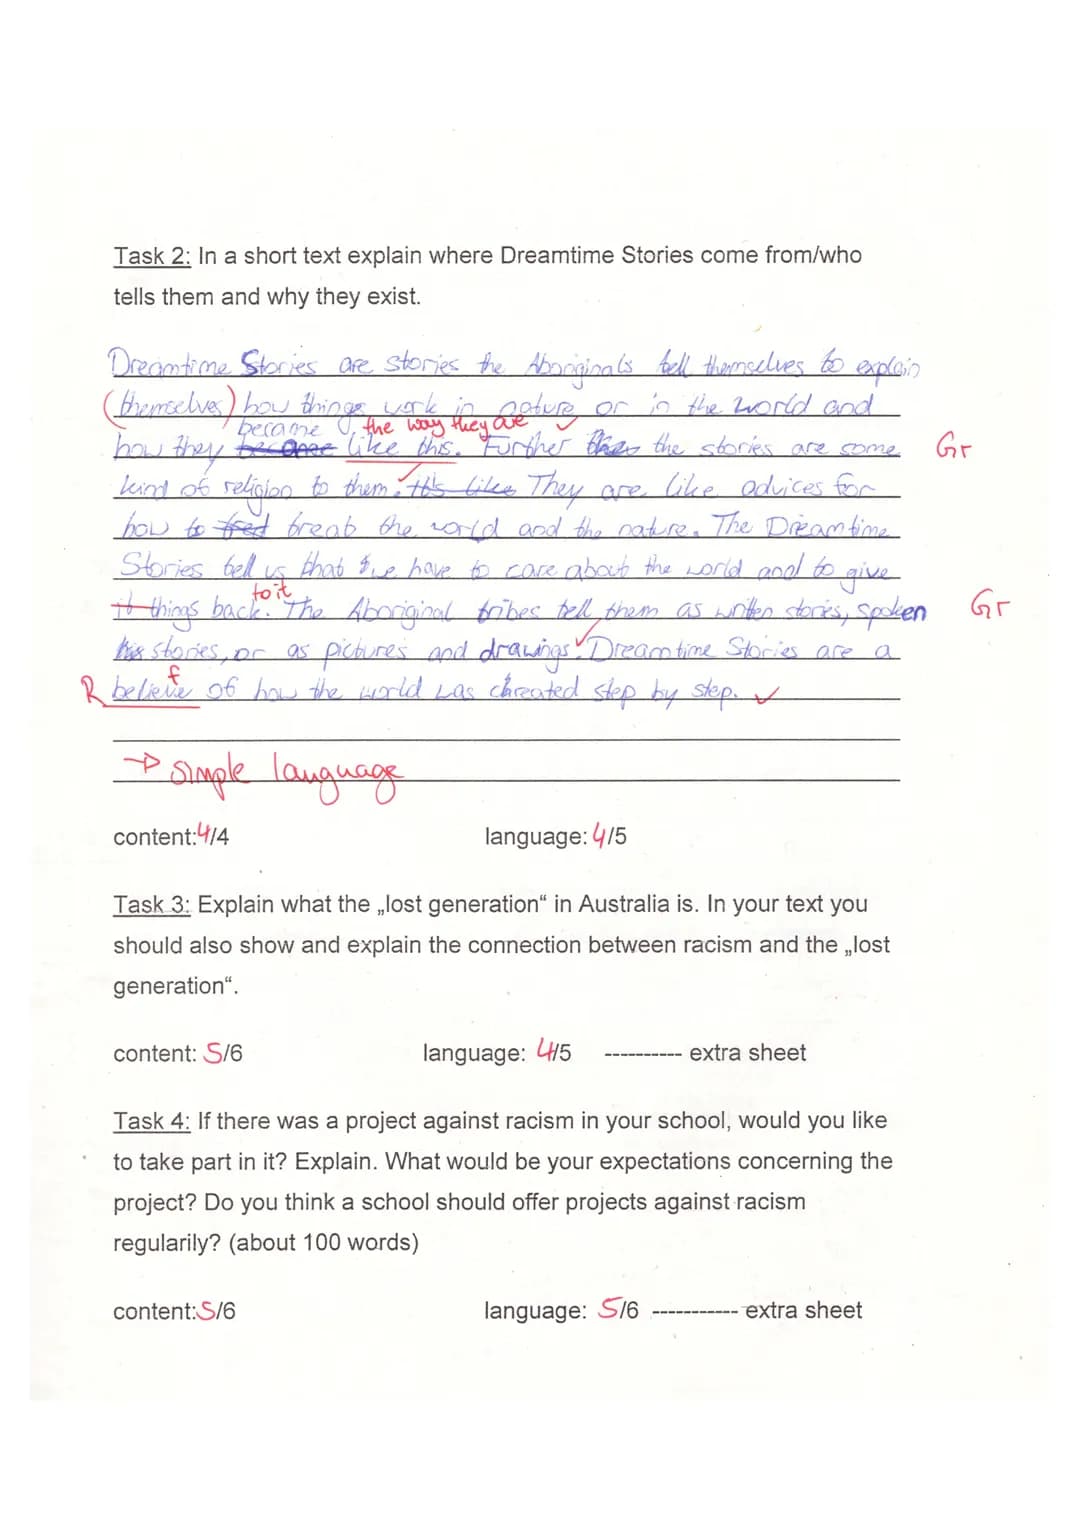 Task 2: In a short text explain where Dreamtime Stories come from/who
tells them and why they exist.
Dreamtime Stories are stories the Aboriginals tell themselves to explain
(themselves) how things work in nature or in the world and
became the way they are
how they like this. Further the stories are some Gr
kind of religion to them. It's like They are like advices for
how to treab the world and the nature. The Dreamtime
Stories tell us that we have to care about the world and to give
to it
it things back. The Aboriginal tribes tell them as written stories, spoken Gr
stories, or as pictures and drawings. Dreamtime Stories are a
f
R believe of how the world was chreated step by step.
→ simple language
content:4/4 language: 4/5
Task 3: Explain what the „lost generation“ in Australia is. In your text you
should also show and explain the connection between racism and the „lost
generation“.
content: 5/6 language: 4/5 ---------- extra sheet
Task 4: If there was a project against racism in your school, would you like
to take part in it? Explain. What would be your expectations concerning the
project? Do you think a school should offer projects against racism
regularily? (about 100 words)
content:5/6 language: 5/6 ----------- extra sheet